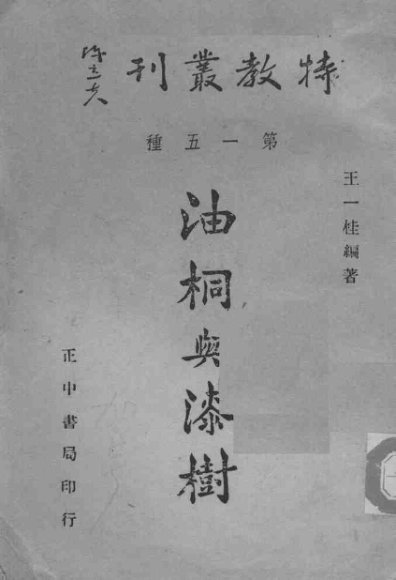 特教叢刊
陳立夫
第一五種
王一桂編著
油桐與漆樹
正中書局印行